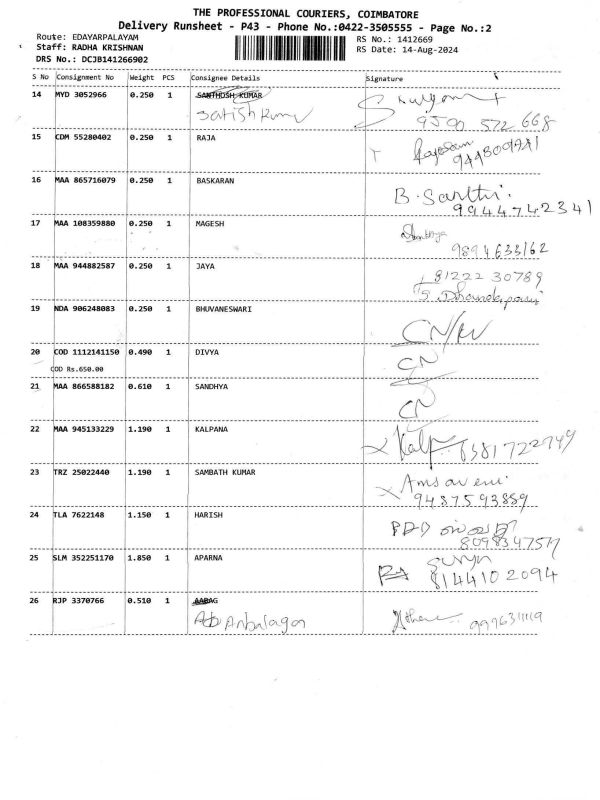 THE PROFESSIONAL COURIERS, COIMBATORE
Delivery Runsheet - P43 - Phone No.:0422-3505555 - Page No.:2
Route: EDAYARPALAYAM
Staff: RADHA KRISHNAN
DRS No.: DCJB141266902
RS No.: 1412669
RS Date: 14-Aug-2024
S No Consignment No Weight PCS Consignee Details Signature
14 MYD 3052966 0.250 1 SANTHOSH KUMAR
Satish Kumar
9590 572 668
15 CDM 55280402 0.250 1 RAJA
16 MAA 865716079 0.250 1 BASKARAN
B. Sarthi.
9944742341
17 MAA 108359880 0.250 1 MAGESH
9894633162
18 MAA 944882587 0.250 1 JAYA
81222 30789
19 NDA 906248083 0.250 1 BHUVANESWARI
20 COD 1112141150 0.490 1 DIVYA
CN
COD Rs.650.00
21 MAA 866588182 0.610 1 SANDHYA
CN
22 MAA 945133229 1.190 1 KALPANA
23 TRZ 25022440 1.190 1 SAMBATH KUMAR
Amsaveni
9487593889
24 TLA 7622148 1.150 1 HARISH
25 SLM 352251170 1.850 1 APARNA
Surya
8144102094
26 RJP 3370766 0.510 1
Anbalagan